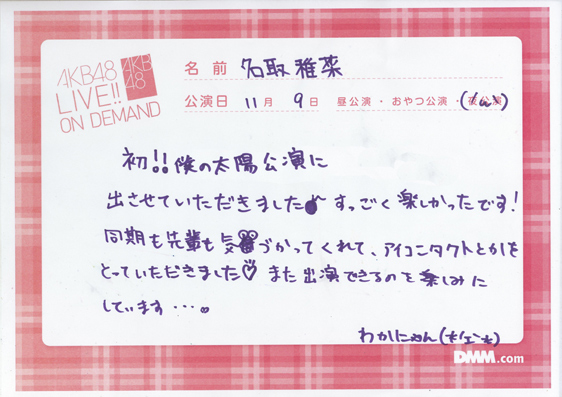 AKB48
LIVE!!
ON DEMAND
AKB
48
名前 名取稚菜
公演日 11月 9日 昼公演・おやつ公演・夜公演
初!!僕の太陽公演に
出させていただきました♪ すっごく楽しかったです!
同期も先輩も気づかってくれて、アイコンタクトとかを
とっていただきました♡ また出演できるのを楽しみに
しています・・・。
わかにゃん(*/エ＼*)
DMM.com